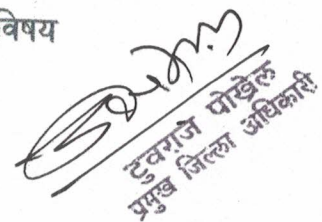 विषय
टुवराज पोखेल
प्रमुख जिल्ला अधिकारी